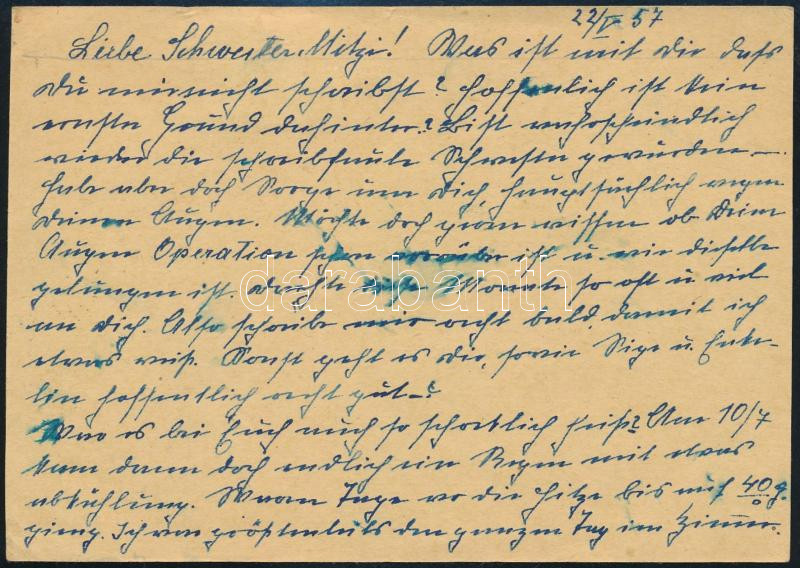 22/V 57
Liebe Schwester Mitzi! Was ist mit Dir dass
Du mir nicht schreibst? Hoffentlich ist kein
ernster Grund dahinter? Bist wahrscheindlich
wieder die schreibfaule Schwester geworden –.
Habe aber doch Sorge um Dich, hauptsächlich wegen
Deinen Augen. Möchte doch gern wissen ob Deine
Augen Operation schon vorüber ist u. wie dieselbe
gelungen ist. Dachte diese Monate so oft u. viel
an Dich. Also schreibe mir recht bald, damit ich
etwas weiß. Sonst geht es Dir, sowie Sigi u. Enke-
lin hoffentlich recht gut –?
War es bei Euch auch so schreklich heiß? Am 10/7
kam dann doch endlich ein Regen mit etwas
abkühlung. Waren Tage wo die Hitze bis auf 40 g.
ging. Ich war größtenteils den ganzen Tag im Zimmer.
darabanth